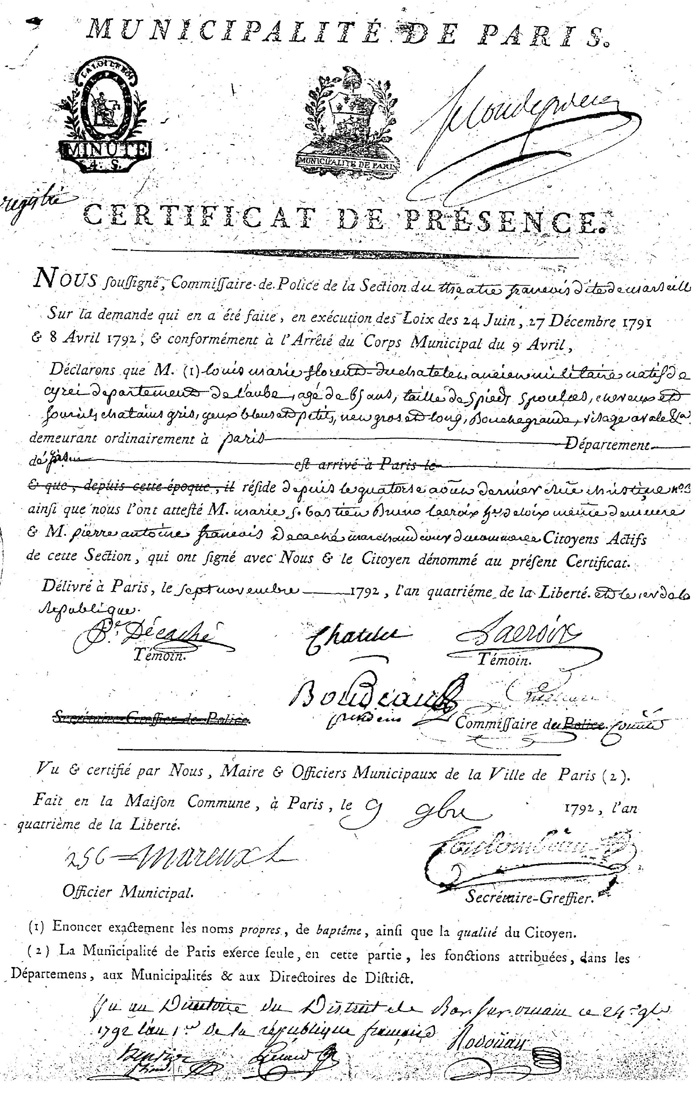 MUNICIPALITÉ DE PARIS.
LA LOI ET LE ROI
MINUTE
4. S.
MUNICIPALITÉ DE PARIS
CERTIFICAT DE PRÉSENCE.
NOUS souſſigné, Commiſſaire de Police de la Section du theatre francois dite de marseill
Sur la demande qui en a été faite, en exécution des Loix des 24 Juin, 27 Décembre 1791
& 8 Avril 1792, & conformément à l'Arrêté du Corps Municipal du 9 Avril,
Déclarons que M. (1) louis marie florent duchatelet, ancien militaire natif de
cyrei departement de l'aube, agé de 65 ans, taille de 5 pieds 5 pouces, cheveux et
sourcils chatains gris, yeux bleus et petits, nez gros et long, Bouche grande, visage
demeurant ordinairement à paris Département
de est arrivé à Paris le
& que, depuis cette époque, il réside depuis le quatorse aout dernier rue christine n.º
ainsi que nous l'ont atteſté M. marie sebastien Bruno lacroix meme demeure
& M. pierre antoine francois Decaché marchand cour du commerce Citoyens Actifs
de cette Section, qui ont ſigné avec Nous & le Citoyen dénommé au préſent Certificat.
Délivré à Paris, le sept novembre 1792, l'an quatriéme de la Liberté. et le 1er de la
Republique.
Decaché Chatelet Lacroix
Témoin. Témoin.
Secrétaire-Greffier de Police Commiſſaire de Police
Vu & certifié par Nous, Maire & Officiers Municipaux de la Ville de Paris (2).
Fait en la Maiſon Commune, à Paris, le 9 9bre 1792, l'an
quatrième de la Liberté.
Coulombeau
Officier Municipal. Secrétaire-Greffier.
(1) Enoncer exactement les noms propres, de baptême, ainſi que la qualité du Citoyen.
(2) La Municipalité de Paris exerce ſeule, en cette partie, les fonctions attribuées, dans les
Départemens, aux Municipalités & aux Directoires de Diſtrict.
Vu au Directoire du District de Bar sur ornain ce 24 9bre
1792 l'an 1er de la république